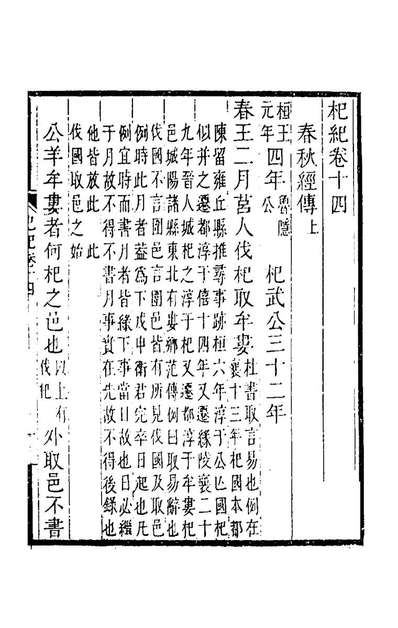 杞紀卷十四
春秋經傳上
桓王
元年四年魯隱
公 杞武公三十二年
春王二月莒人伐杞取牟婁杜書取言易也例在
襄十三年杞國本都
陳留雍丘縣推尋事跡桓六年淳于公亡國杞
似并之遷都淳于僖十四年又遷緣陵襄二十
九年晉人城杞之淳于杞又遷都淳于牟婁杞
邑城陽諸縣東北有婁鄉范傳例曰取易辭也
伐國不言圍邑言圍邑皆有所見伐國及取邑
例時此月者蓋為下戊申衛君完卒日起也凡
例宜時而書月者皆緣下事當日故也日必繼
于月故不得不書月事實在先故不得後錄也
他皆放此 此
伐國取邑之始
公羊牟婁者何杞之邑也以上有
伐杞 外取邑不書
杞紀卷十四